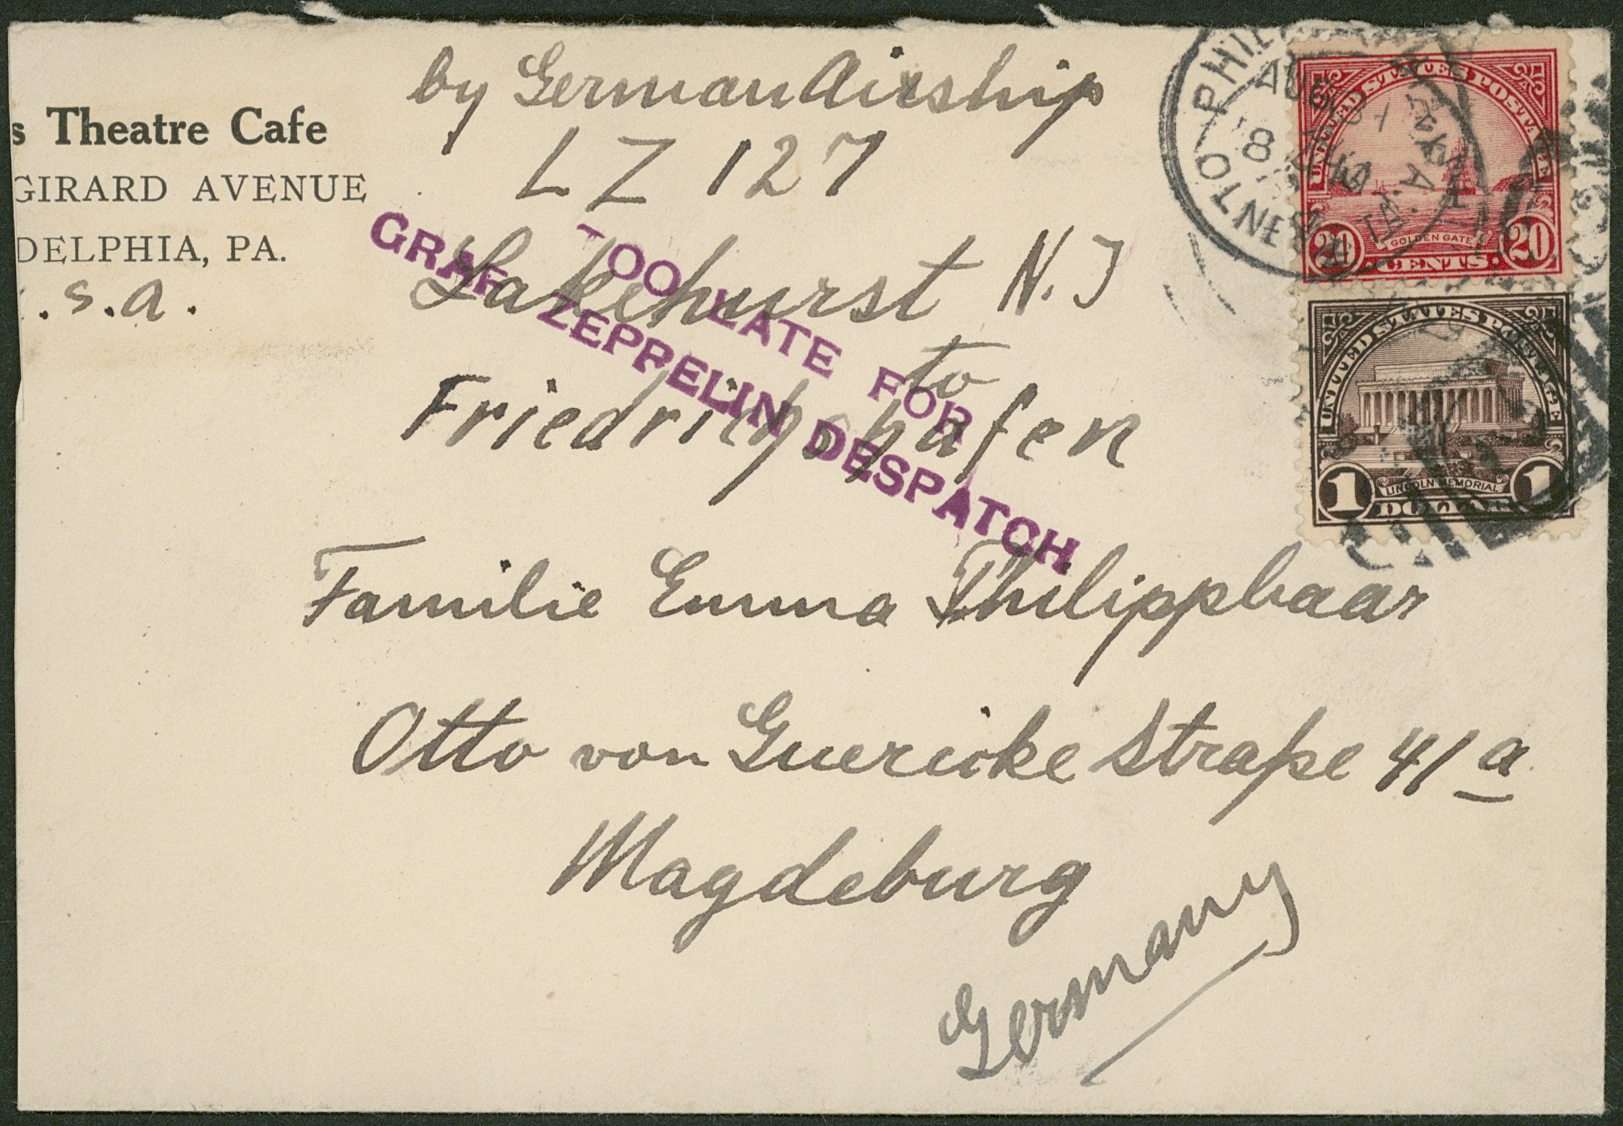 s Theatre Cafe
GIRARD AVENUE
DELPHIA, PA.
.S.A.
by German Airship
LZ 127
Lakehurst N.J
to
Friedrichshafen
TOO LATE FOR
GRAF ZEPPELIN DESPATCH
Familie Emma Philippbaar
Otto von Guericke Straße 41a
Magdeburg
Germany
AUG
8
UNITED STATES POSTAGE
GOLDEN GATE
20 CENTS 20
UNITED STATES POSTAGE
LINCOLN MEMORIAL
1 DOLLAR 1